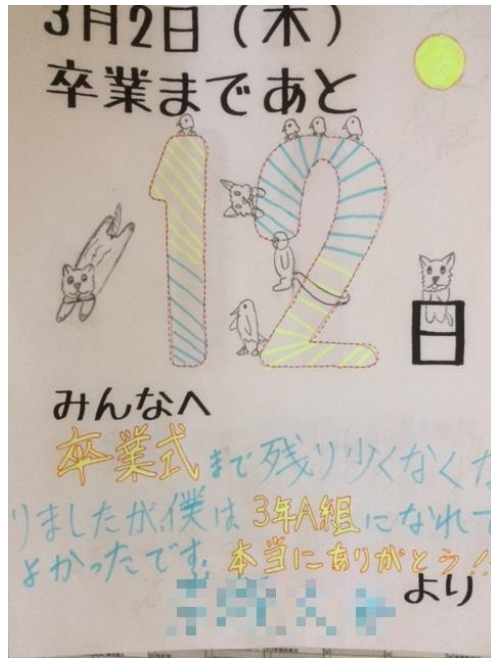 3月2日（木）
卒業まであと
12日
みんなへ
卒業式まで残り少なくな
りましたが、僕は3年A組になれて
よかったです。本当にありがとう!!
より